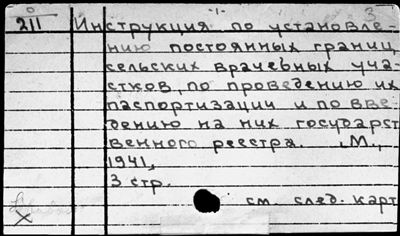 3
211 Инструкция по установле-
нию постоянных границ
сельских врачебных уча-
стков, по проведению их
паспортизации и по вве-
дению на них государст
венного реестра. М.,
1941,
3 стр.
см. след. карт